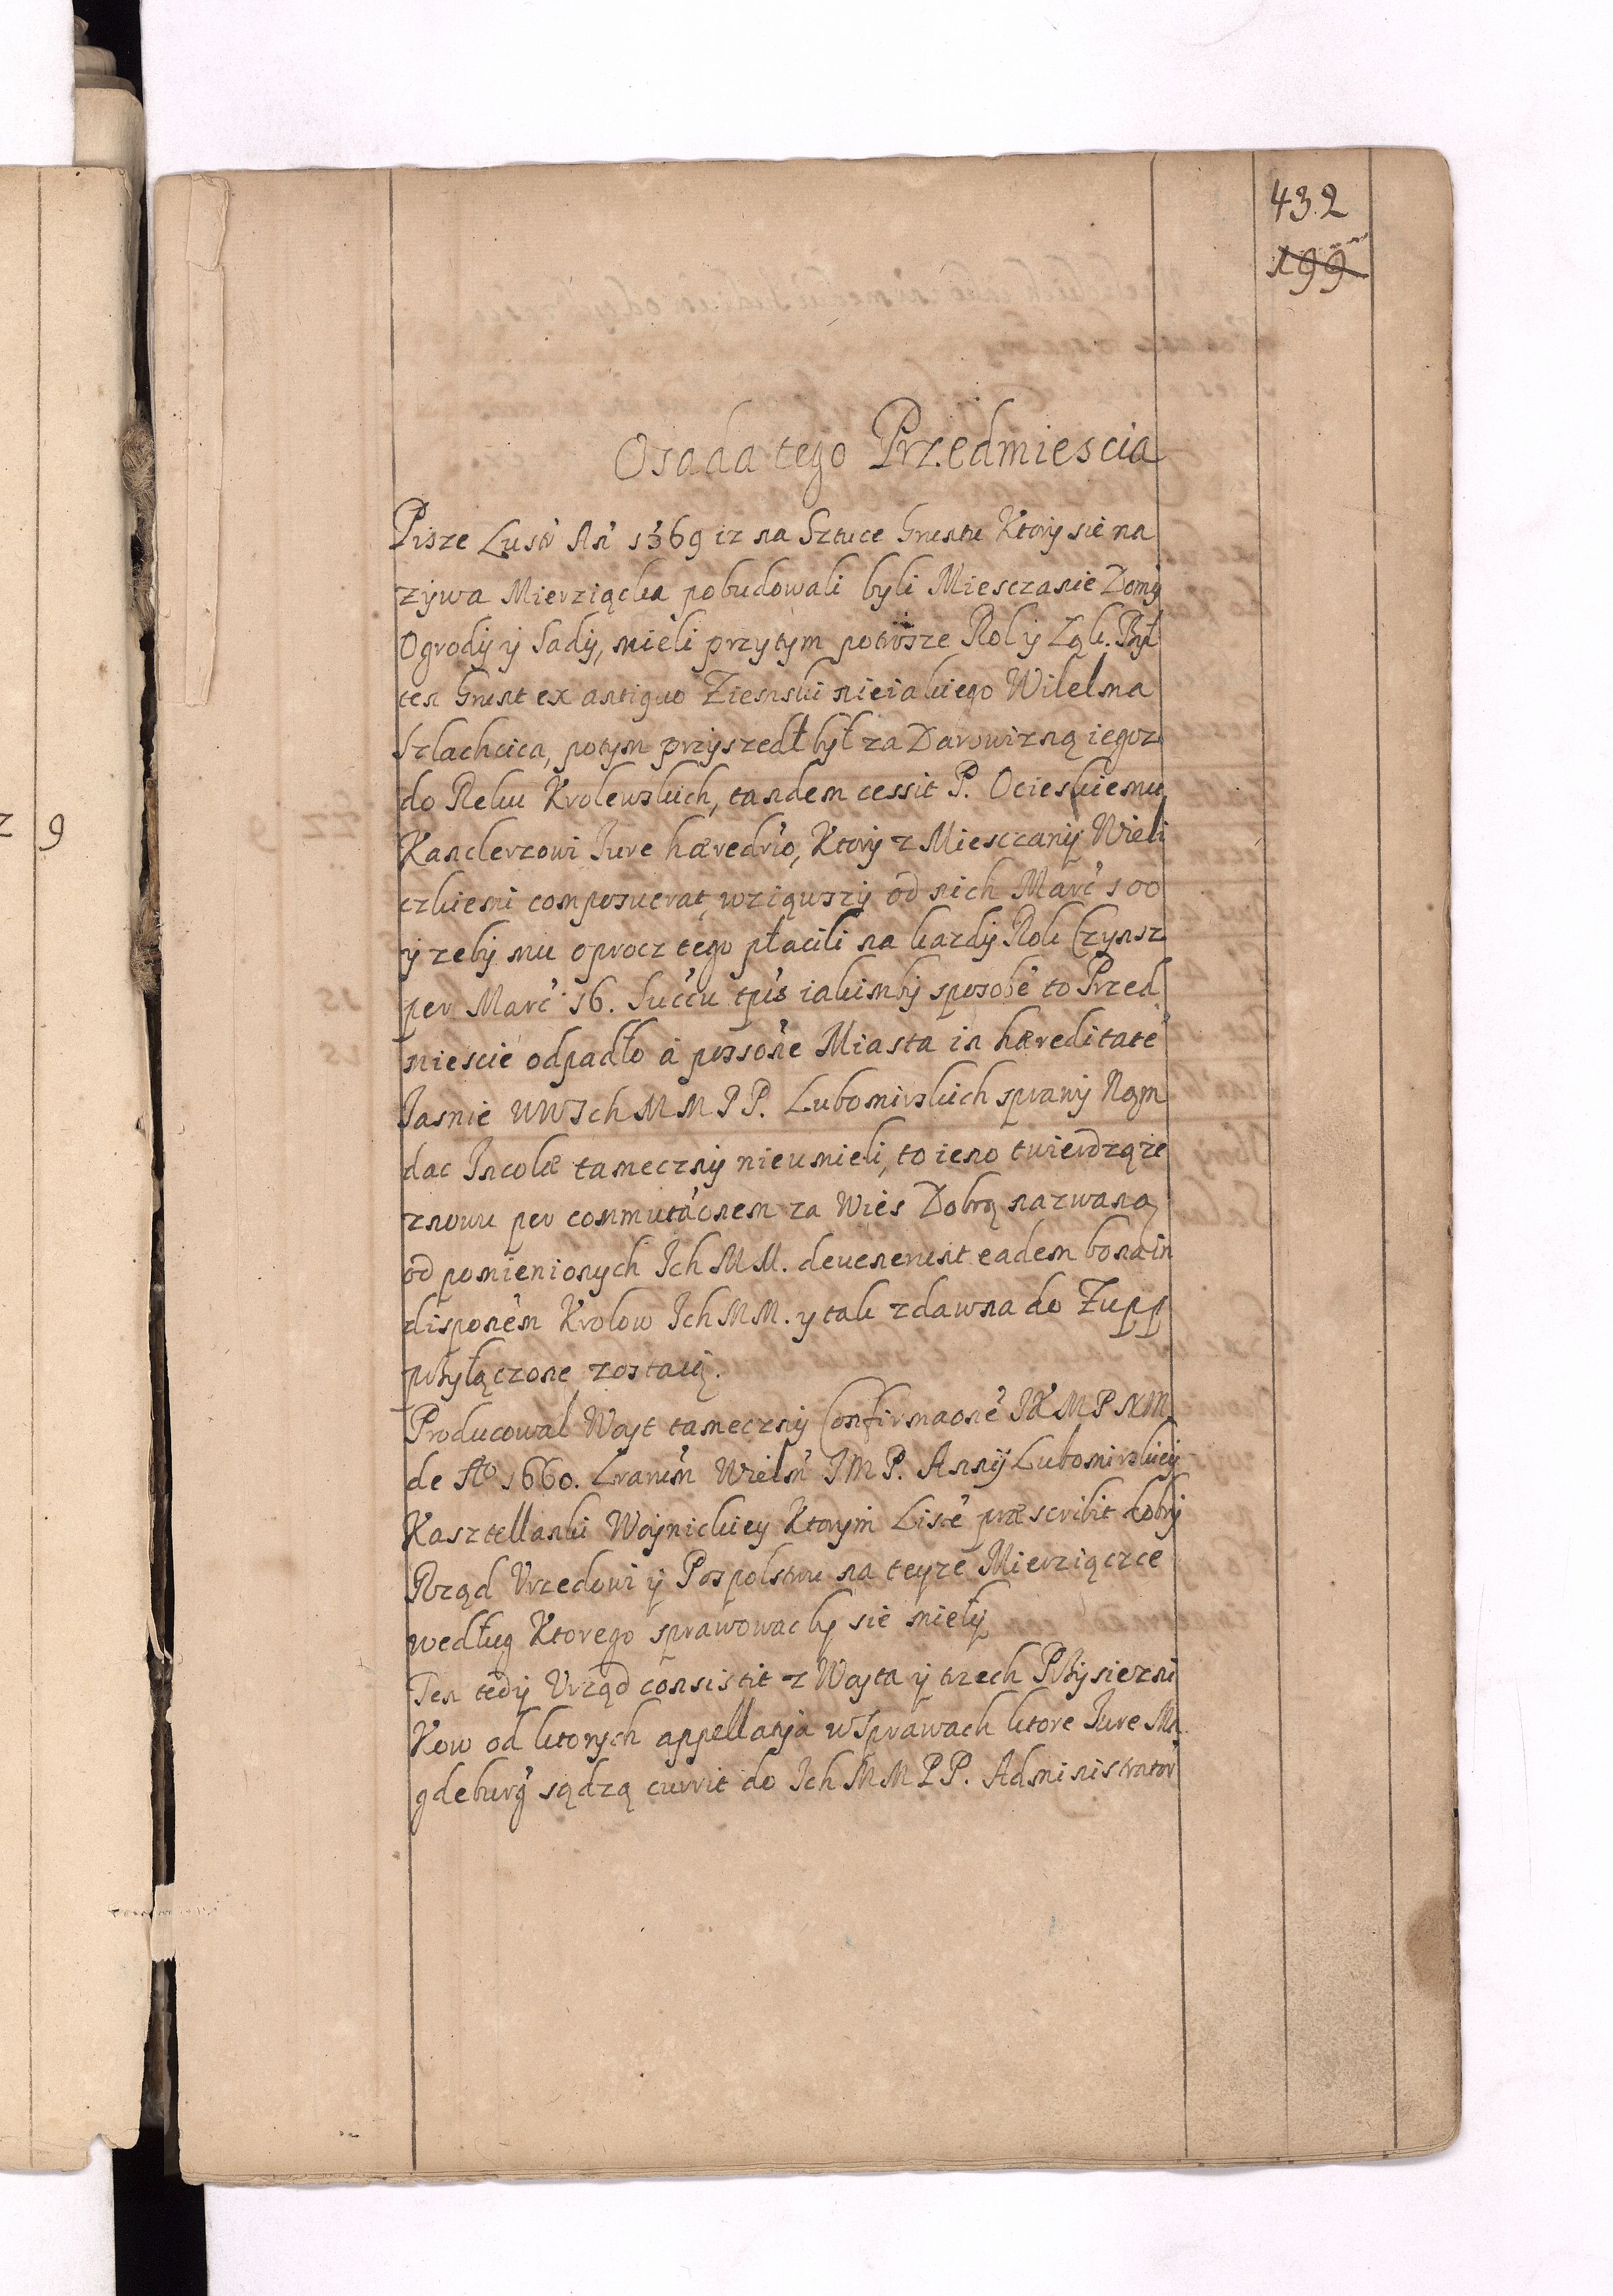 432
199
Osada tego Przedmiescia
Pisze Lustr An 1569 iz na Sztuce Gruntu Ktory się na
zywa Mierziączka pobudowali byli Miesczanie Domy
Ogrody y Sady, mieli przytym potrosze Rol y Ląk. Był
ten Grunt ex antiquo Ziemski nieiakiego Wilelma
Szlachcica, potym przyszedł był za Darowizną iegoz
do Ręku Krolewskich, tandem cessit P. Ocieskiemu
Kanclerzowi Iure hæredrio, Ktory z Miesczany Wieli
czkiemi composuerat, wziąwszy od nich Marc 100
y zeby mu oprocz tego płacili na kazdy Rok Czynsz
per Marc 16. Succu tpis iakimby sposobē to Przed
miescie odpadło á possone Miasta in hæreditatē
Iasnie WW Ich MM PP. Lubomirskich sprawy Nam
dac Incolæ tameczny nieumieli, to ieno twierdzą ze
znowu per commutaonem za Wies Dobrą nazwaną
od pomienionych Ich MM. devenerunt eadem bona in
disponem Krolow Ich MM. y tak zdawna do Zupp
przyłączone zostaią.
Producował Woyt tameczny Confirmaonē IKMPNM
de Ao 1660. Lrarum Wielm IMP. Anny Lubomirskiey
Kasztellanki Woynickiey Ktorym Listē præscribit dobry
Rząd Vrzędowi y Pospolstwu na teyze Mierziączce
według Ktorego sprawowac by się mieły
Ten tedy Vrząd consistit z Woyta y trzech Przysiezni
Kow od ktorych appellatia w sprawach ktore Iure Ma
gdeburg sądzą currit do Ich MM PP. Administrator
z 9